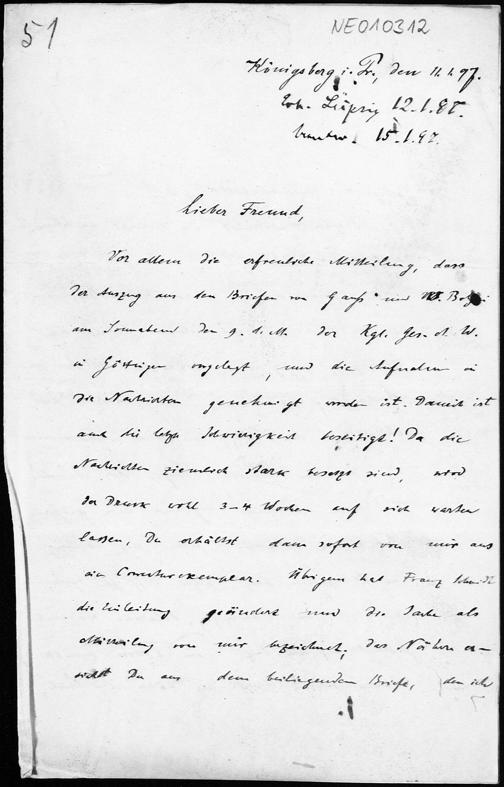 51
NE010312
Königsberg i. Pr., den 11.1.97.
Erh. Leipzig 12.1.97.
Beantw. 15.1.97.
Lieber Freund,
Vor allem die erfreuliche Mitteilung, dass
der Auszug aus den Briefen von Gauß und W. Bolyai
am Sonnabend den 9. d. M. der Kgl. Ges. d. W.
in Göttingen vorgelegt, und die Aufnahme in
die Nachrichten genehmigt worden ist. Damit ist
auch die letzte Schwierigkeit beseitigt! Da die
Nachrichten ziemlich stark besetzt sind, wird
der Druck wohl 3–4 Wochen auf sich warten
lassen, Du erhältst dann sofort von mir aus
ein Correcturexemplar. Übrigens hat Franz Schmidt
die Einleitung geändert und die Sache als
Mitteilung von mir bezeichnet; das Nähere er-
siehst Du aus dem beiliegenden Briefe, den ich